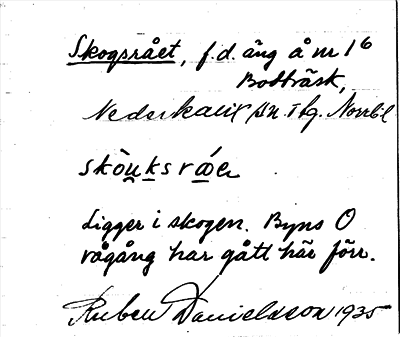 Skogsrået, f.d. äng å nr 1⁶
Bodträsk,
Nederkalix sn. Norrb.l
skòu̲k̲sråer
Ligger i skogen. Byns O
rågång har gått här förr.
Ruben Danielsson 1935